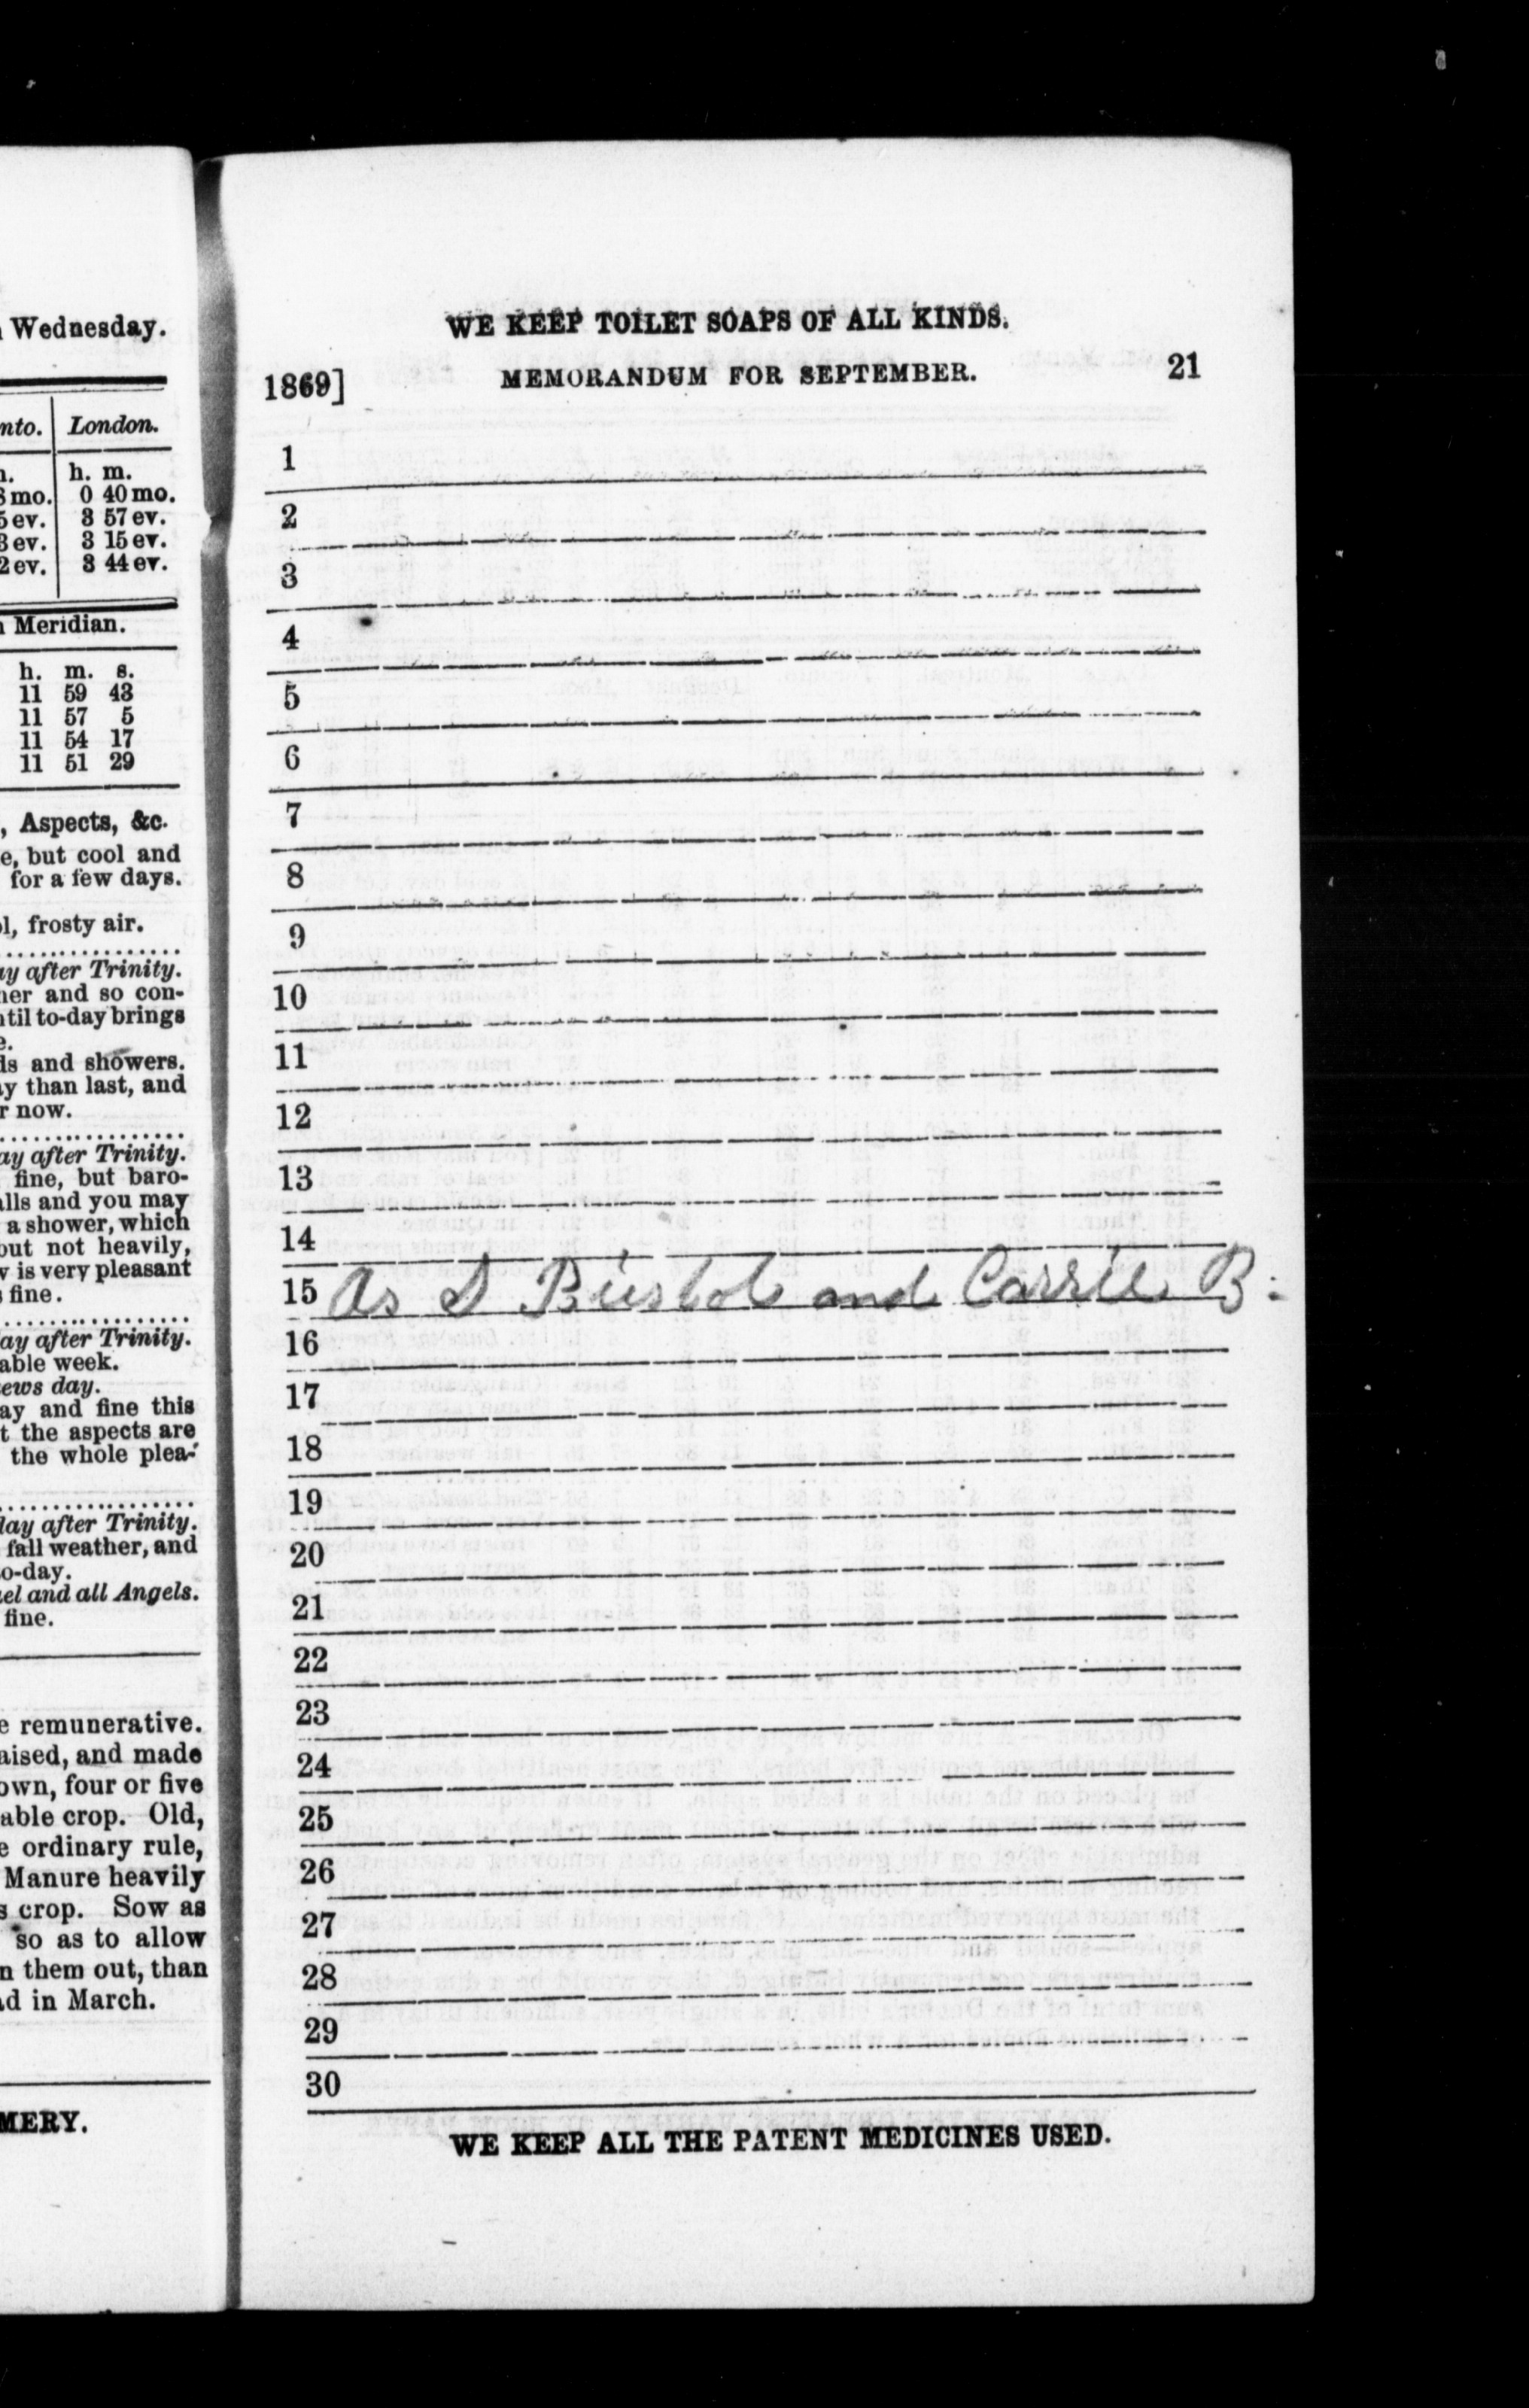 Wednesday.
nto. London.
h. m.
mo. 0 40 mo.
5 ev. 3 57 ev.
3 ev. 3 15 ev.
2 ev. 3 44 ev.
Meridian.
h. m. s.
11 59 43
11 57 5
11 54 17
11 51 29
, Aspects, &c.
e, but cool and
for a few days.
l, frosty air.
ay after Trinity.
her and so con-
ntil to-day brings
e.
ds and showers.
ay than last, and
r now.
ay after Trinity.
fine, but baro-
alls and you may
a shower, which
out not heavily,
y is very pleasant
s fine.
ay after Trinity.
able week.
ews day.
ay and fine this
t the aspects are
the whole plea-
day after Trinity.
fall weather, and
o-day.
ael and all Angels.
fine.
e remunerative.
aised, and made
own, four or five
able crop. Old,
e ordinary rule,
Manure heavily
s crop. Sow as
so as to allow
n them out, than
ad in March.
MERY.
WE KEEP TOILET SOAPS OF ALL KINDS.
1869] MEMORANDUM FOR SEPTEMBER. 21
1
2
3
4
5
6
7
8
9
10
11
12
13
14
15 As D Bristol and Carrie B.
16
17
18
19
20
21
22
23
24
25
26
27
28
29
30
WE KEEP ALL THE PATENT MEDICINES USED.